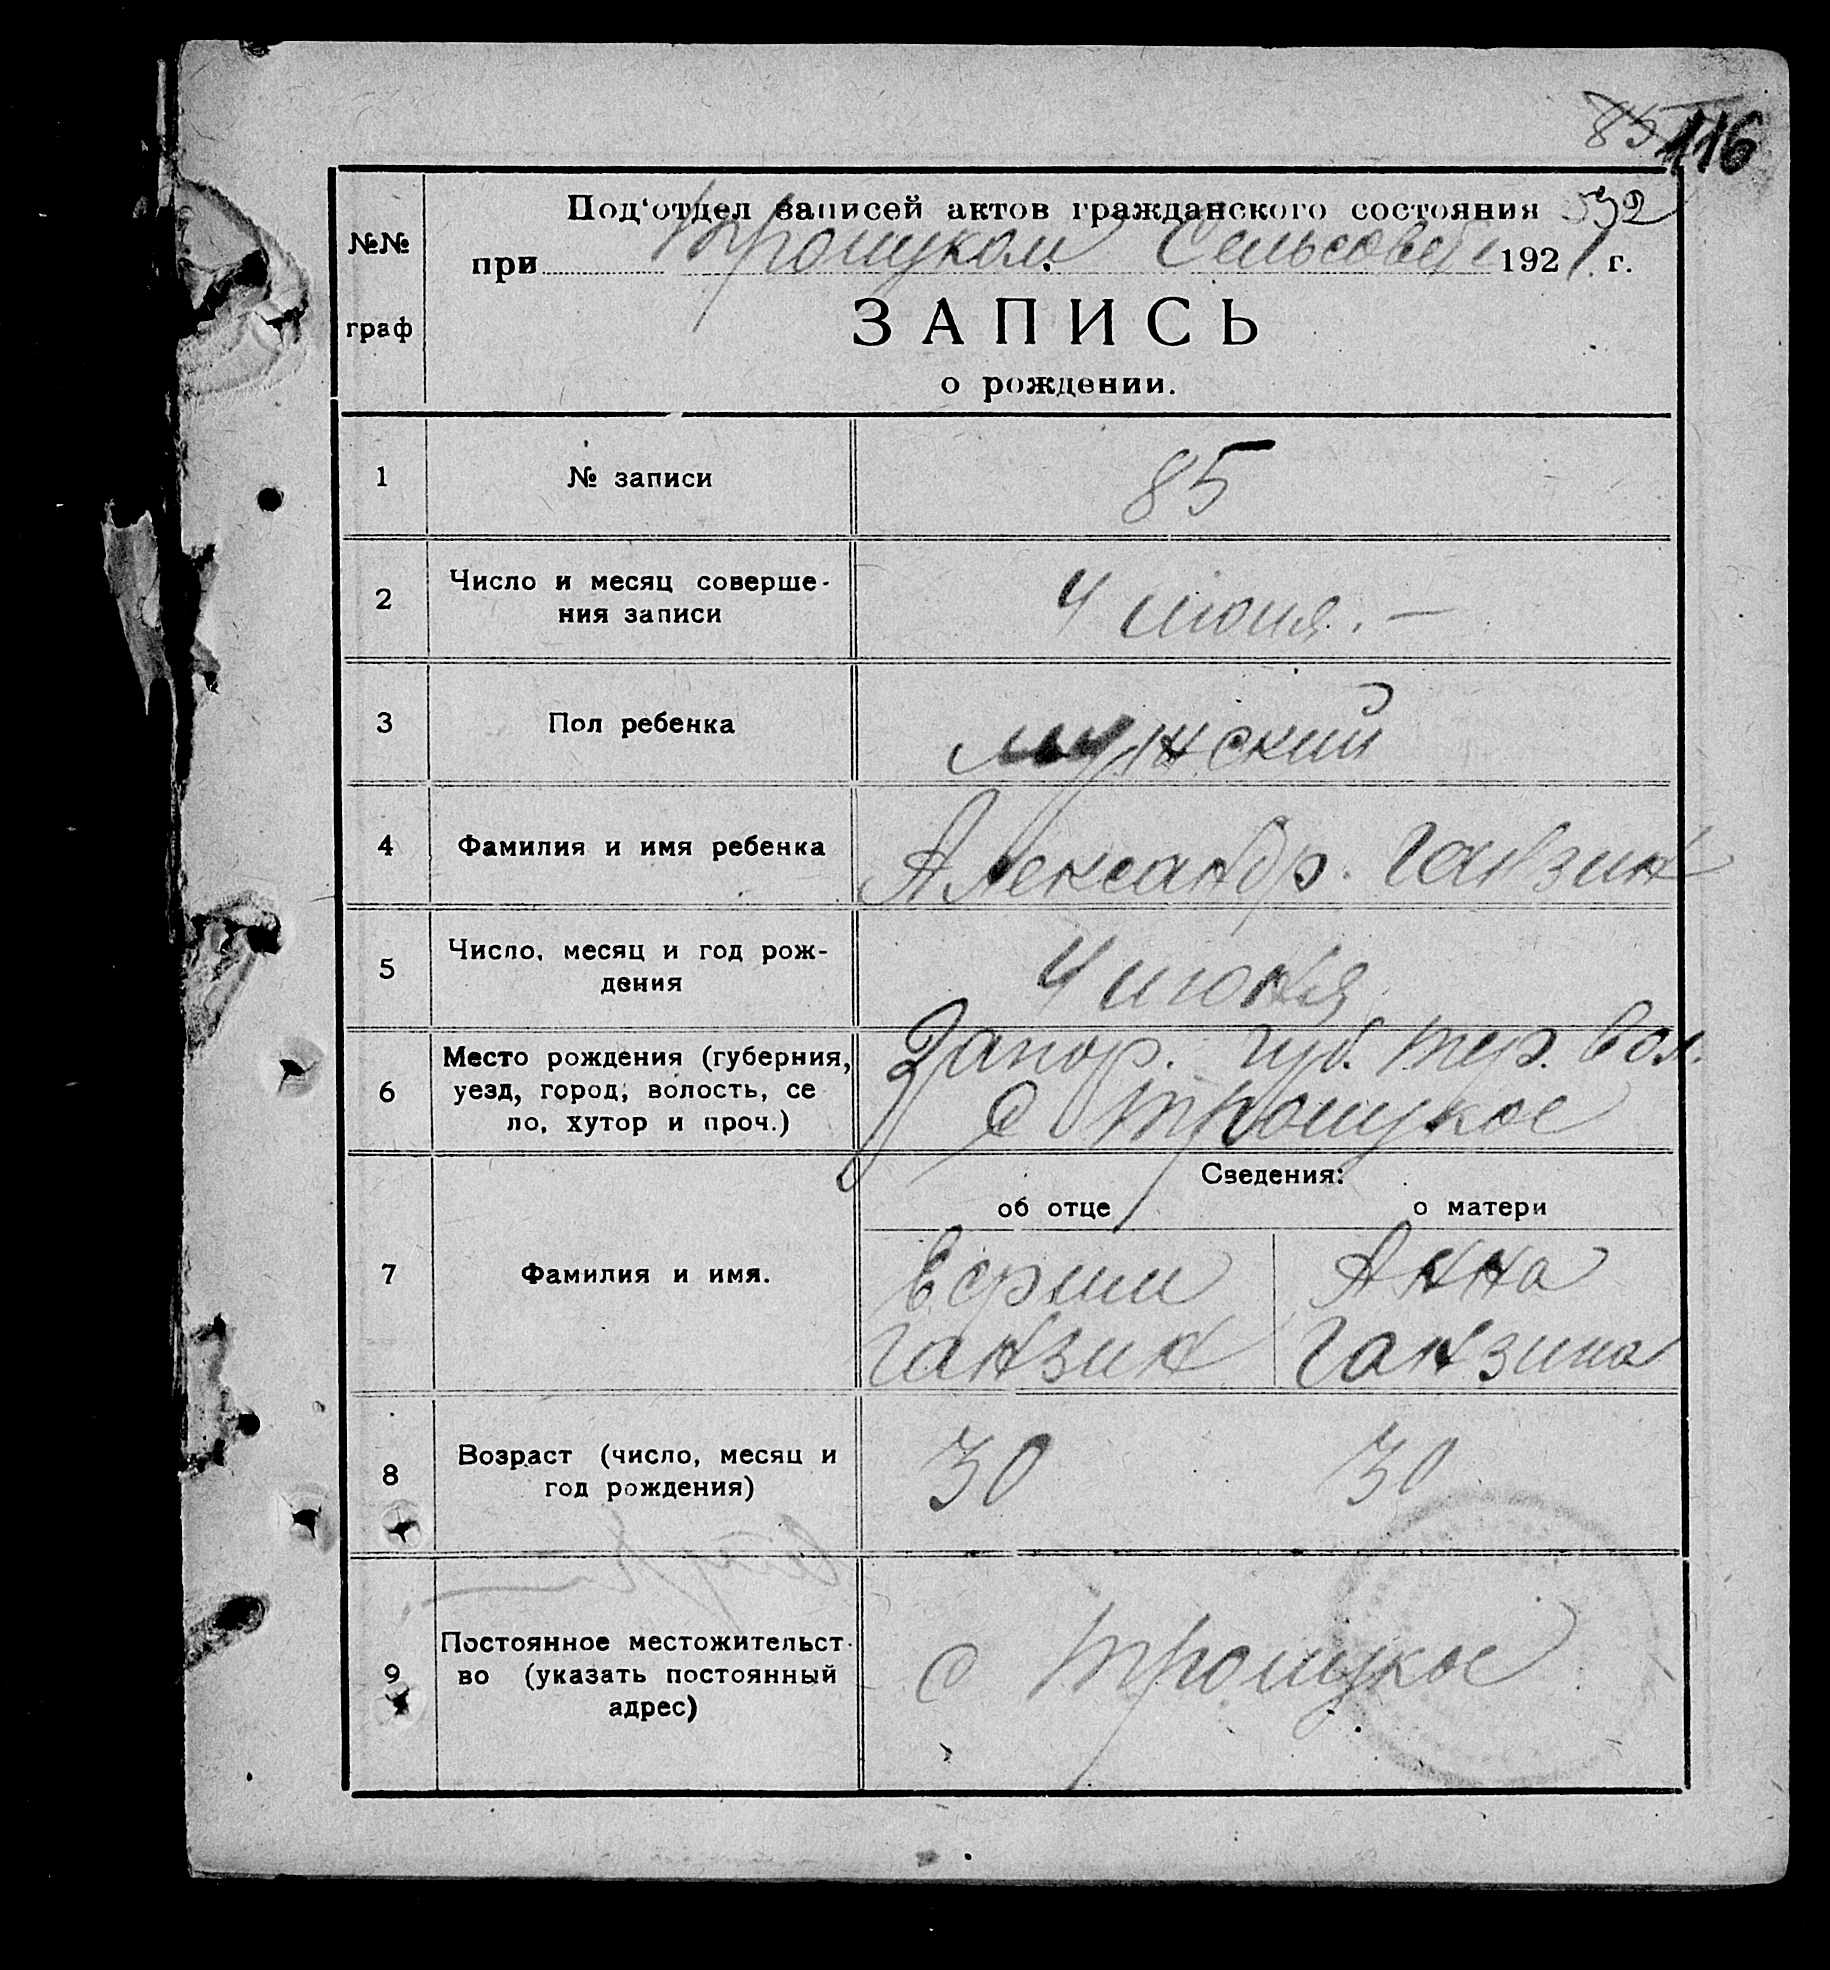 85 116
Под‘отдел записей актов гражданского состояния 532
№№
при Троицком Сельсовете 1921 г.
граф
ЗАПИСЬ
о рождении.
1 № записи 85
2 Число и месяц соверше-
ния записи 4 июня. —
3 Пол ребенка мужский
4 Фамилия и имя ребенка Александр. Ганзин
5 Число, месяц и год рож-
дения 4 июня
6 Место рождения (губерния, Запор. губ. Тер. вол.
уезд, город, волость, се
ло, хутор и проч.) с Троицкое
Сведения:
об отце о матери
7 Фамилия и имя. Ефим Анна
Ганзин Ганзина
8 Возраст (число, месяц и
год рождения) 30 30
9 Постоянное местожительст-
во (указать постоянный
адрес) с Троицкое